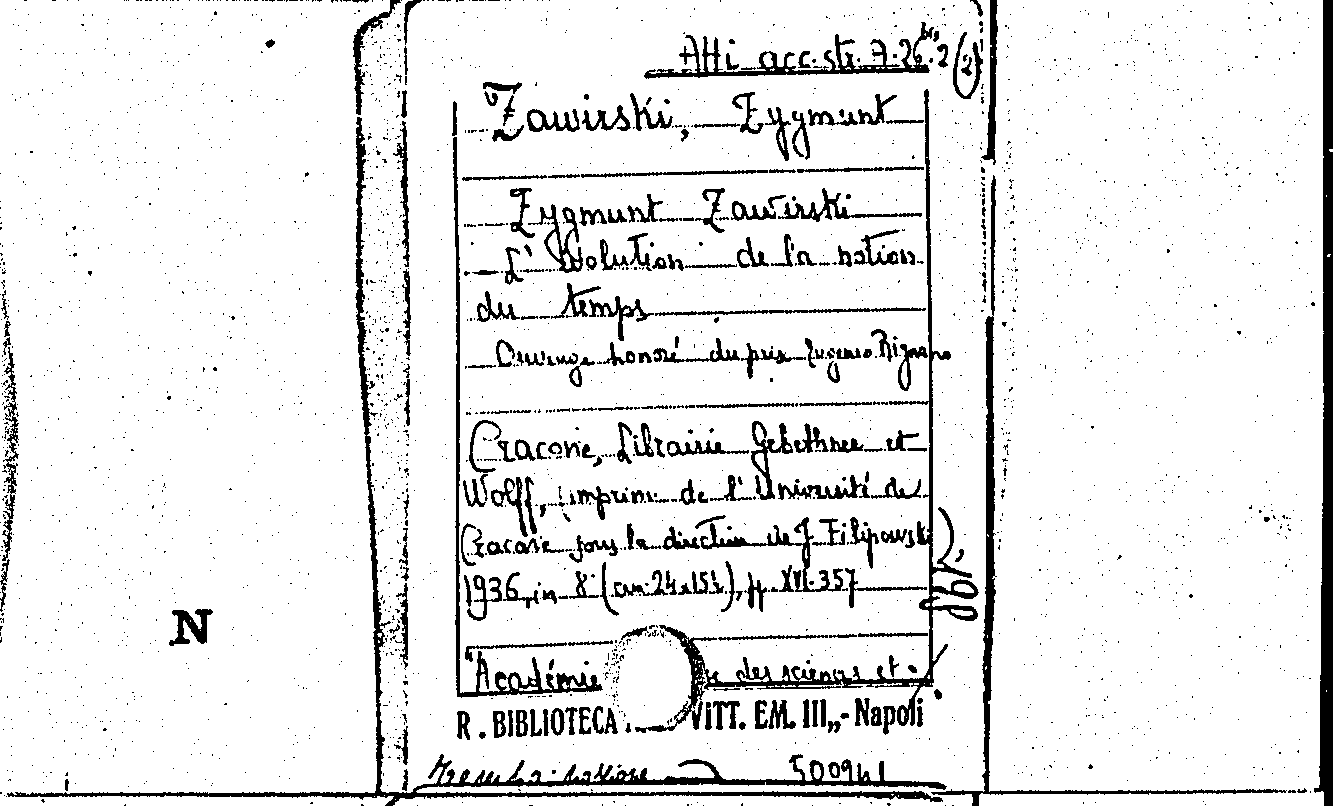 Atti acc. str. 7. 26 bis. 2 (2)
Zawirski, Zygmunt
Zygmunt Zawirski
- L'Evolution de la notion
du temps
Ouvrage honoré du prix Eugenio Rignano
Cracovie, Librairie Gebethner et
Wolff, (imprim. de l'Université de
Cracovie sous la direction de J. Filipowski),
1936, in 8° (cm. 24x15½), pp. XVI-357
"Académie des sciences et
N
R. BIBLIOTECA VITT. EM. III„ - Napoli
500941